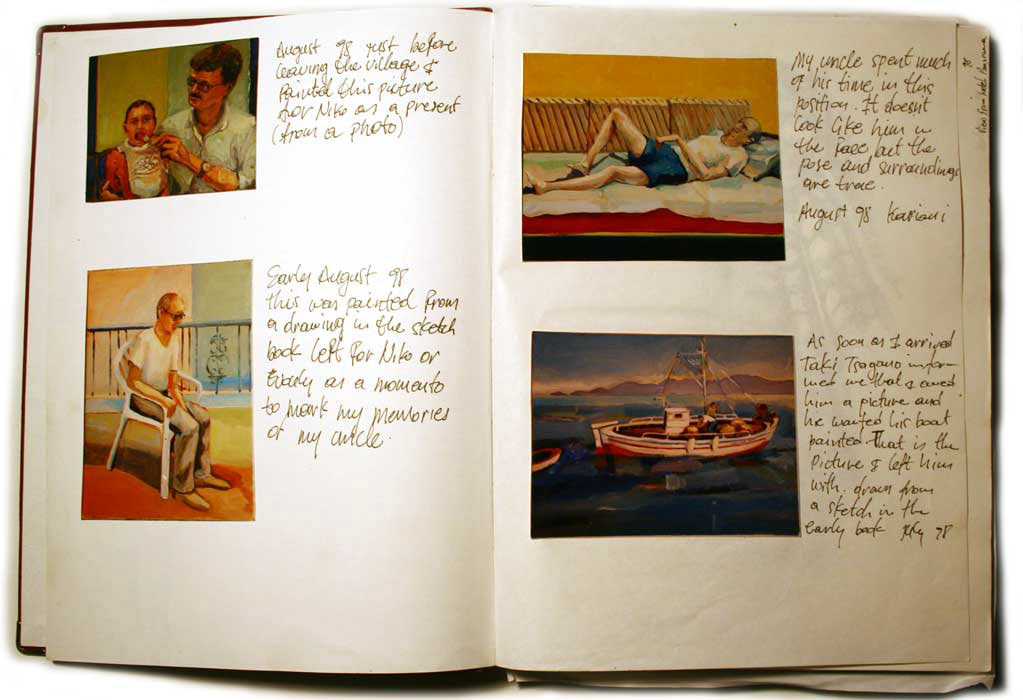 August 98 just before
leaving the village I
painted this picture
for Niko as a present
(from a photo)
Early August 98
this was painted from
a drawing in the sketch
book left for Niko or
as a momento
to mark my memories
of my uncle.
My uncle spent much
of his time in this
position. It doesnt
look like him in
the face, but the
pose and surroundings
are true.
August 98 Kariani
As soon as I arrived
Taki Tsagano infor-
med me that I owed
him a picture and
he wanted his boat
painted. That is the
picture I left him
with. drawn from
a sketch in the
early book July 98
View from hotel
98